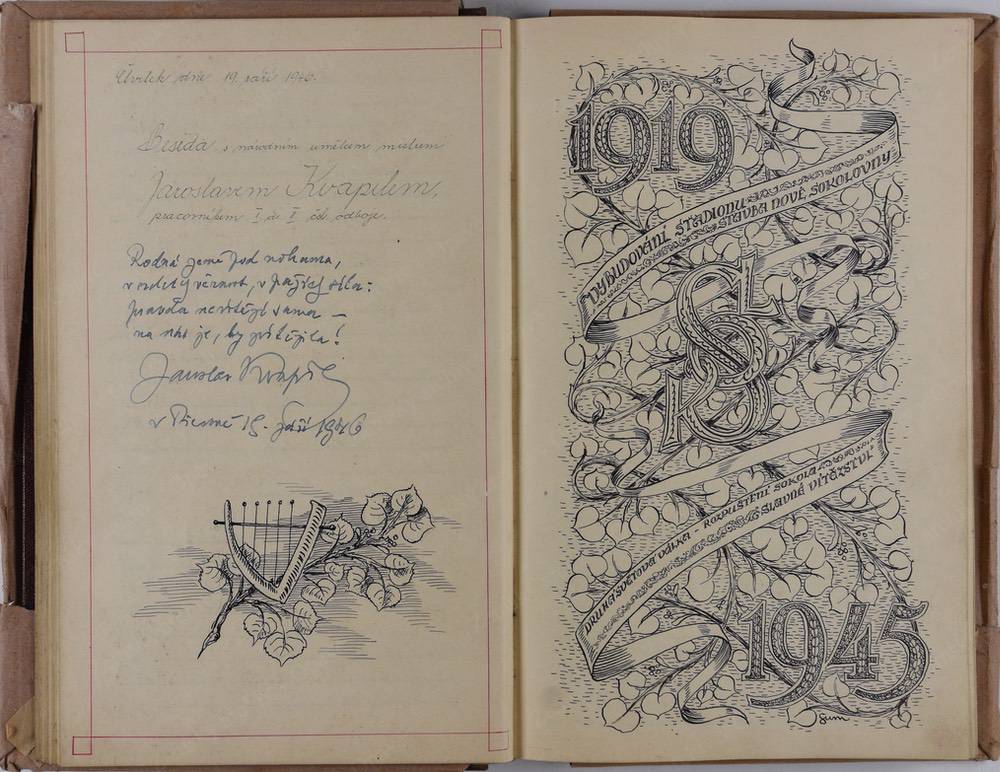 Čtvrtek dne 19. září 1946.
Beseda s národním umělcem mistrem
Jaroslavem Kvapilem,
pracovníkem I. a II. čsl. odboje.
Rodná země pod nohama,
v srdcích věrnost, v pažích síla:
pravda nevítězí sama –
na nás je, by zvítězila!
Jaroslav Kvapil
v 19. září 1946
1919
VYBUDOVÁNÍ STADIONU
STAVBA NOVÉ SOKOLOVNY
DRUHÁ SVĚTOVÁ VÁLKA - ROZPUŠTĚNÍ SOKOLA
SLAVNÉ VÍTĚZSTVÍ
1945